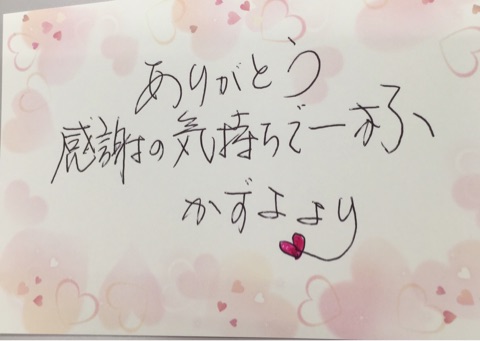 ありがとう
感謝の気持ちで
かずよより